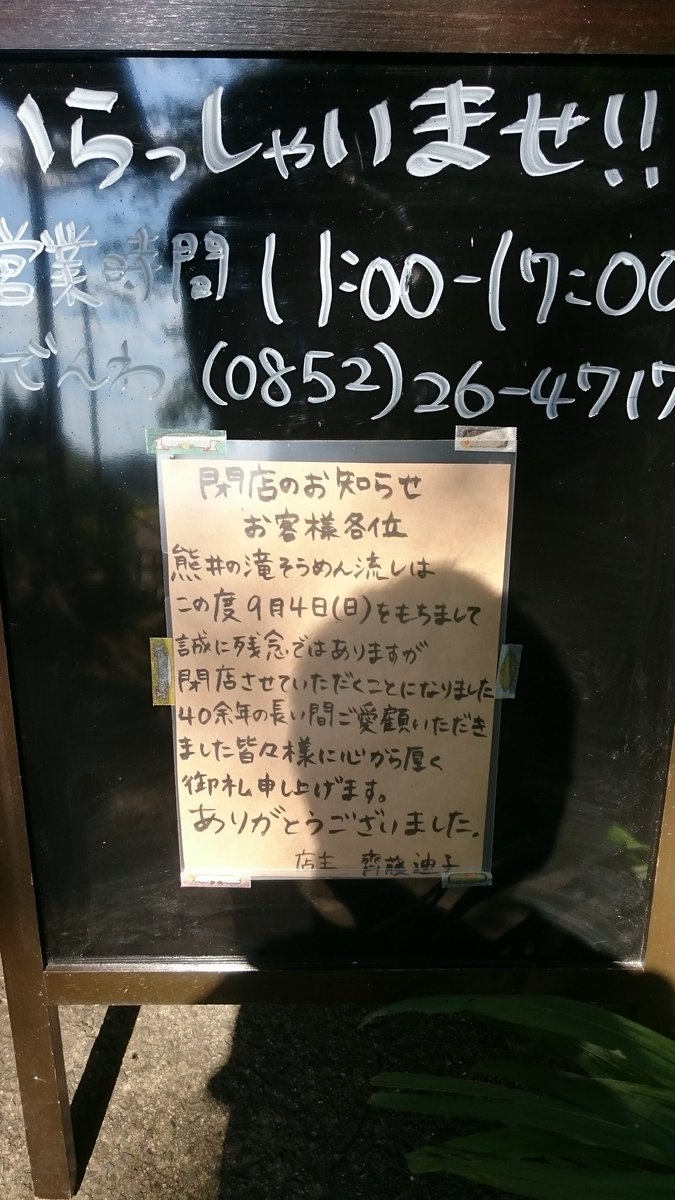 いらっしゃいませ!!
営業時間 11:00-17:00
でんわ (0852)26-4717
閉店のお知らせ
お客様各位
熊井の滝そうめん流しは
この度9月4日(日)をもちまして
誠に残念ではありますが
閉店させていただくことになりました
40余年の長い間ご愛顧いただき
ました皆々様に心から厚く
御礼申し上げます。
ありがとうございました。
店主 齊藤迪子